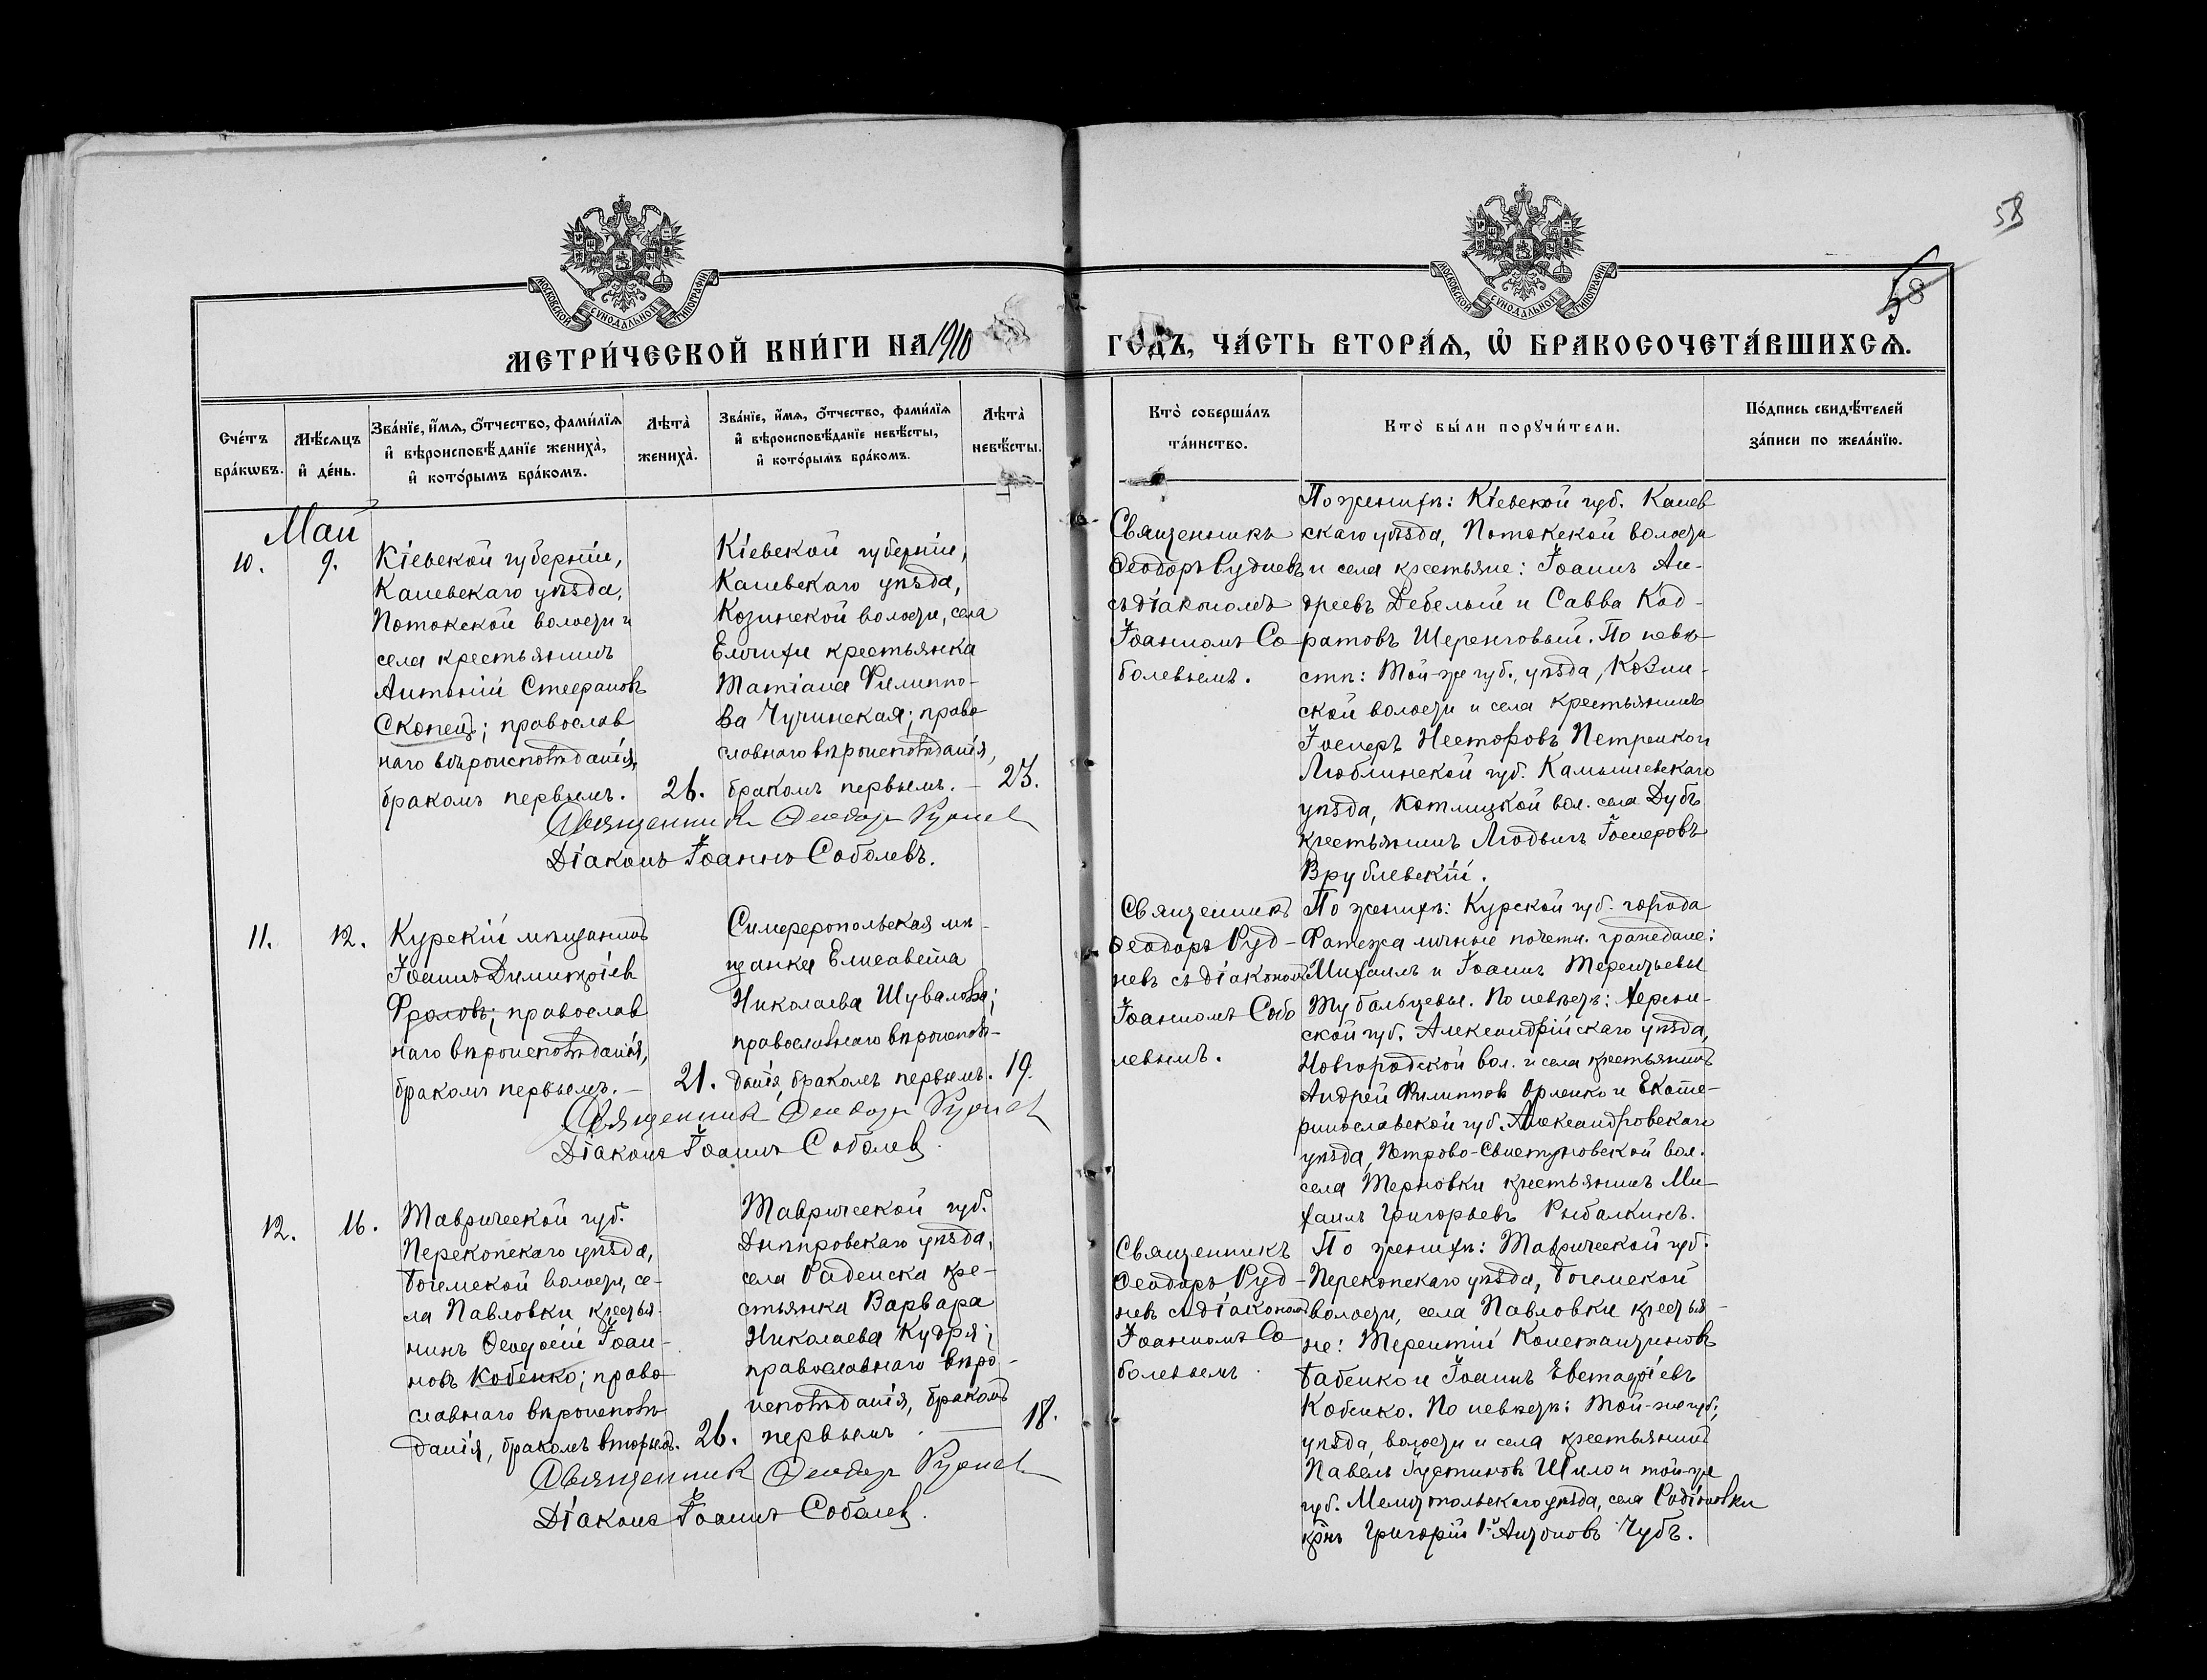 58
58
МОСКОВСКОЙ СУНОДАЛЬНОЙ ТИПОГРАФІИ
МОСКОВСКОЙ СУНОДАЛЬНОЙ ТИПОГРАФІИ
МЕТРИ́ЧЕСКОЙ КНИ́ГИ НА 1910
ГОДЪ, ЧА́СТЬ ВТОРА́Ѧ, Ѡ҆ БРАКОСОЧЕТА́ВШИХСѦ.
Сче́тъ
бра́кѡвъ.
Мѣ́сѧцъ
и҆ де́нь.
Зва́нїе, и҆́мѧ, ѻ҆́тчество, фами́лїѧ
и҆ вѣроисповѣ́данїе жениха̀,
и҆ кото́рымъ бра́комъ.
Лѣ́та̀
жениха̀.
Зва́нїе, и҆́мѧ, ѻ҆́тчество, фами́лїѧ
и҆ вѣроисповѣ́данїе невѣ́сты,
и҆ кото́рымъ бра́комъ.
Лѣ́та̀
невѣ́сты.
Кто̀ соверша́лъ
та́инство.
Кто̀ бы́ли порꙋчи́тели.
По́дпись свидѣ́телей
за́писи по жела́нїю.
Май
10.
9.
Кіевской губерніи,
Каневскаго уѣзда,
Потокской волости и
села крестьянинъ
Антоній Стефановъ
Скопецъ; православ
наго вѣроисповѣданія,
бракомъ первымъ.
26.
Кіевской губерніи,
Каневскаго уѣзда,
Козинской волости, села
Емчихи крестьянка
Татіана Филиппо-
ва Чучинская; право
славнаго вѣроисповѣданія,
бракомъ первымъ. –
23.
Священник Феодор Руднев
Діаконъ Іоаннъ Соболевъ.
Священникъ
Феодоръ Рудневъ
съ діакономъ
Іоанномъ Со
болевымъ.
По женихѣ: Кіевской губ. Канев
скаго уѣзда, Потокской волости
и села крестьяне: Іоаннъ Ан-
дреевъ Дебелый и Савва Код-
ратовъ Шеренговый. По невѣ-
стѣ: Той-же губ., уѣзда, Козин-
ской волости и села крестьянинъ
Іосифъ Несторовъ Петренко и
Люблинской губ. Камышевскаго
уѣзда, Котлицкой вол. села Дубъ
крестьянинъ Людвигъ Іосифовъ
Врублевскій.
11.
12.
Курскій мѣщанинъ
Іоаннъ Димитріев
Фролов; православ
наго вѣроисповѣданія,
бракомъ первымъ. –
21.
Симферопольская мѣ-
щанка Елисавета
Николаева Шувалова;
православнаго вѣроисповѣ-
данія, бракомъ первымъ.
19.
Священник Феодор Руднев
Діаконъ Іоаннъ Соболев.
Священникъ
Феодоръ Руд-
невъ съ діакономъ
Іоанномъ Собо
левымъ.
По женихѣ: Курской губ. города
Фатежа личные почетн. граждане:
Михаилъ и Іоаннъ Терентьевы
Тубальцевы. По невѣстѣ: Херсон-
ской губ. Александрійскаго уѣзда,
Новгородской вол. и села крестьянинъ
Андрей Филиппов Орленко и Екате-
ринославской губ. Александровскаго
уѣзда, Петрово-Свистуновской вол.
села Терновки крестьянинъ Ми-
хаилъ Григорьевъ Рыбалкинъ.
12.
16.
Таврической губ.
Перекопскаго уѣзда,
Богемской волости, се-
ла Павловки крестья-
нинъ Феодосій Іоан-
новъ Кобенко; право
славнаго вѣроисповѣ
данія, бракомъ вторымъ.
26.
Таврической губ.
Днѣпровскаго уѣзда,
села Раденска кре-
стьянка Варвара
Николаева Кудря;
православнаго вѣро-
исповѣданія, бракомъ
первымъ. –
18.
Священник Феодор Руднев
Діаконъ Іоаннъ Соболев.
Священникъ
Феодоръ Руд-
невъ съ діакономъ
Іоанномъ Со
болевымъ.
По женихѣ: Таврической губ.
Перекопскаго уѣзда, Богемской
волости, села Павловки крестья-
не: Терентій Константиновъ
Бабенко и Іоаннъ Евстафіевъ
Кобенко. По невѣстѣ: Той-же губ.,
уѣзда, волости и села крестьянинъ
Павелъ Іустиновъ Шило и той-же
губ. Мелитопольскаго уѣзда, села Родіоновки
кр̃нъ Григорій 1-й Антоновъ Чубъ.